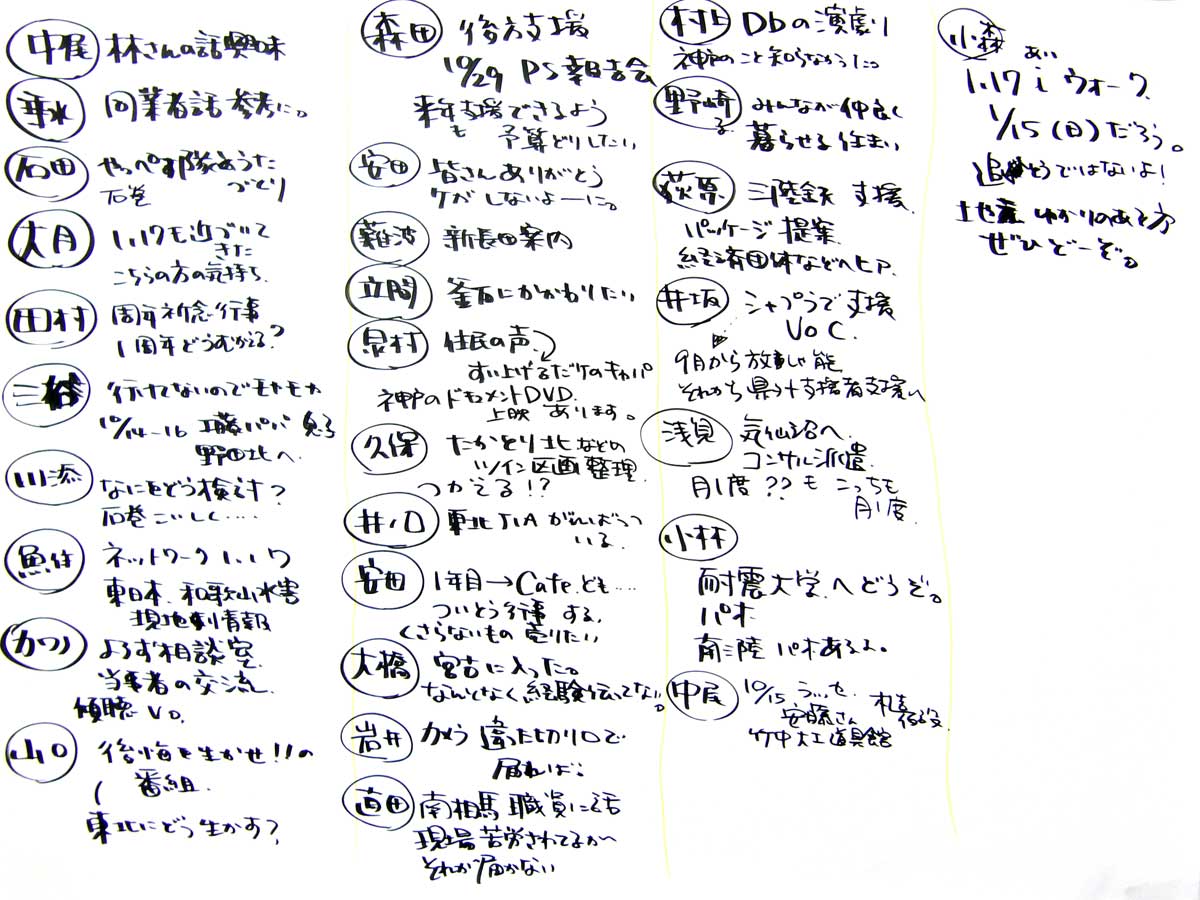 中尾 林さんの話興味
垂水 同業者話 参考に。
石田 やっぺす隊おうた
石巻 づくり
大月 1.17も近づいて
きた
こちらの方の気持ち
田村 周年祈念行事
1周年どうむかえる?
三 行けてないのでモヤモヤ
10/14-16 工藤パパ
野田北へ
川添 なにをどう検討?
石巻こいしく・・・・
魚住 ネットワーク1.17
東日本、和歌山水害
現地 情報
かつの よろず相談室
当事者の交流
傾聴Vo.
山口 後悔を生かせ!!の
番組
東北にどう生かす?
森田 後方支援
10/29 PS報告会
来年支援できるよう
も 予算どりしたい
安田 皆さんありがとう
ケガしないよーに。
難波 新長田案内
立間 釜石にかかわりたい
泉村 住民の声
すい上げるだけのキャパ
神戸のドキュメントDVD
上映あります。
久保 たかとり北などの
ツイン区画整理
つかえる!?
井ノ口 東北JIAがんばって
いる
安田 1年目→Cafeども・・・・
ついとう行事する
くさらないもの売りたい
大橋 宮古に入った。
なんとなく経験伝ってない。
岩井 カメラ 違った切り口で
届れば
直田 南相馬職員に話
現場苦労されてるが
それが届かない
村上 Dbの演劇
神戸のこと知らなかった。
野崎 みんなが仲良く
る 暮らせる住まい
荻原 三陸鉄 支援
パッケージ提案
経済団体などへヒア
井坂 シャプラで支援
Vo C.
9月から放
それから県外支援者支援へ
浅見 気仙沼へ
コンサル派遣
月1度??も こっちも
月1度
小林
耐震大学へどうぞ。
パオ
南三陸パオあるよ。
中尾 10/15
安藤さん
竹中大工道具館
小森 あい
1.17iウォーク
1/15(日)だろう。
追悼どうではないよ!
地震ゆかりのあと方
ぜひどーぞ。